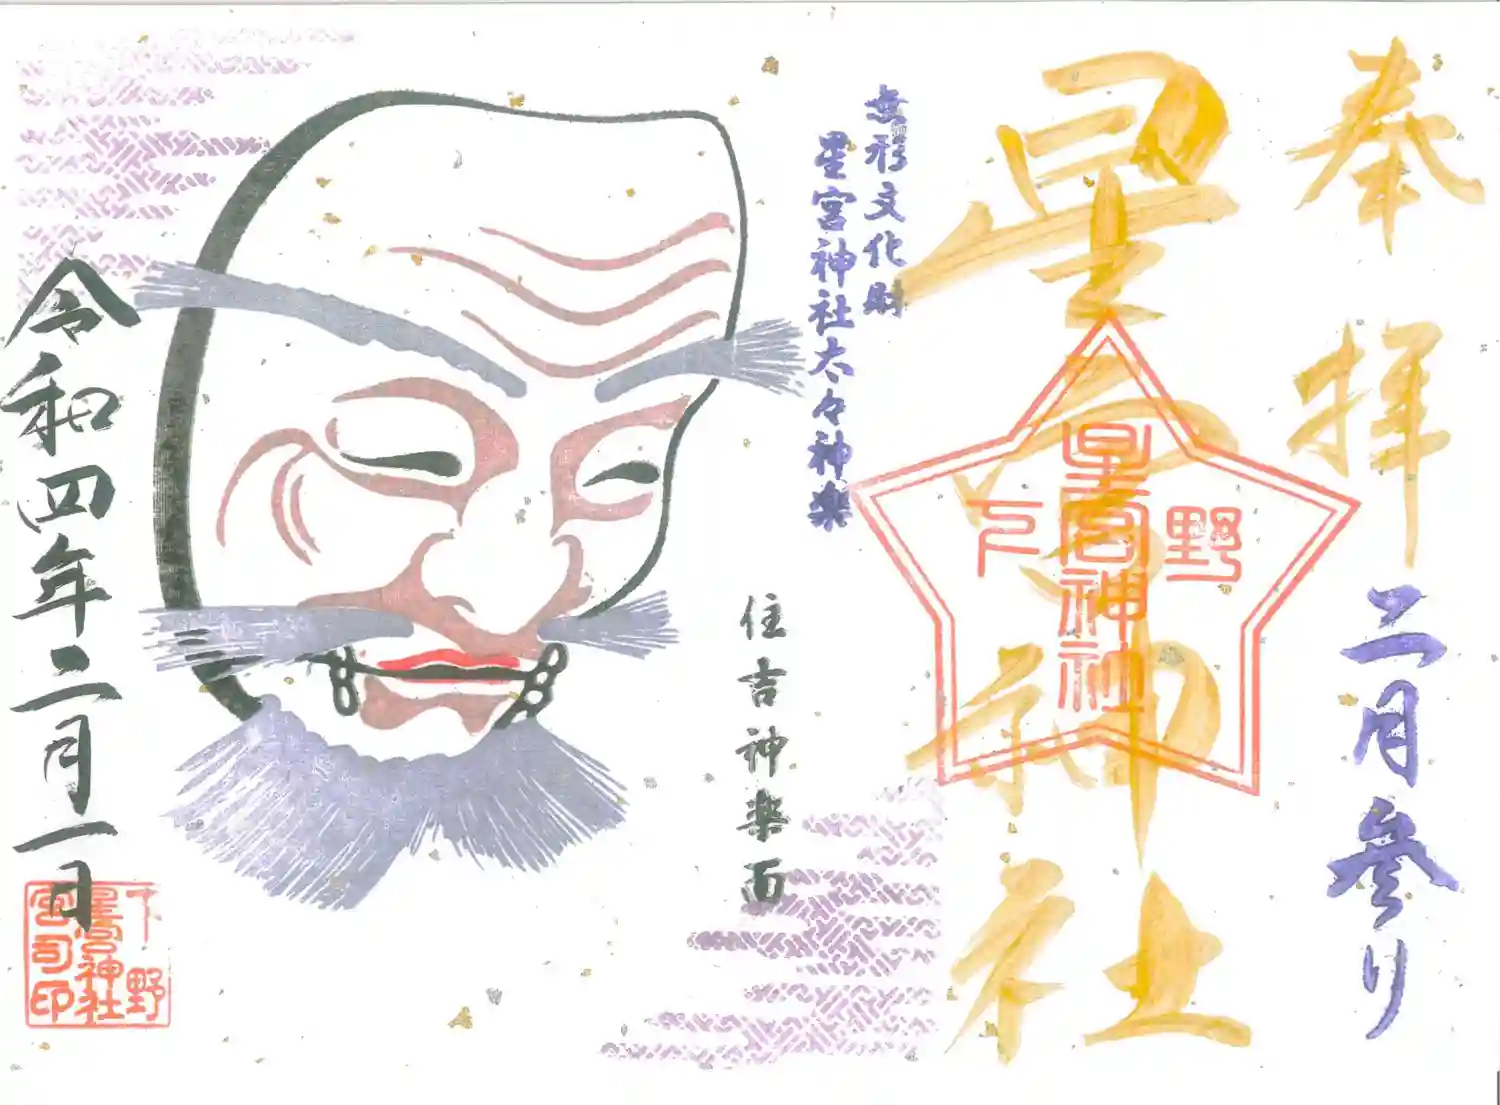 奉拝
二月参り
星宮神社
下野
星宮神社
無形文化財
星宮神社太々神楽
住吉神楽面
令和四年二月一日
下野
星宮神社
宮司印